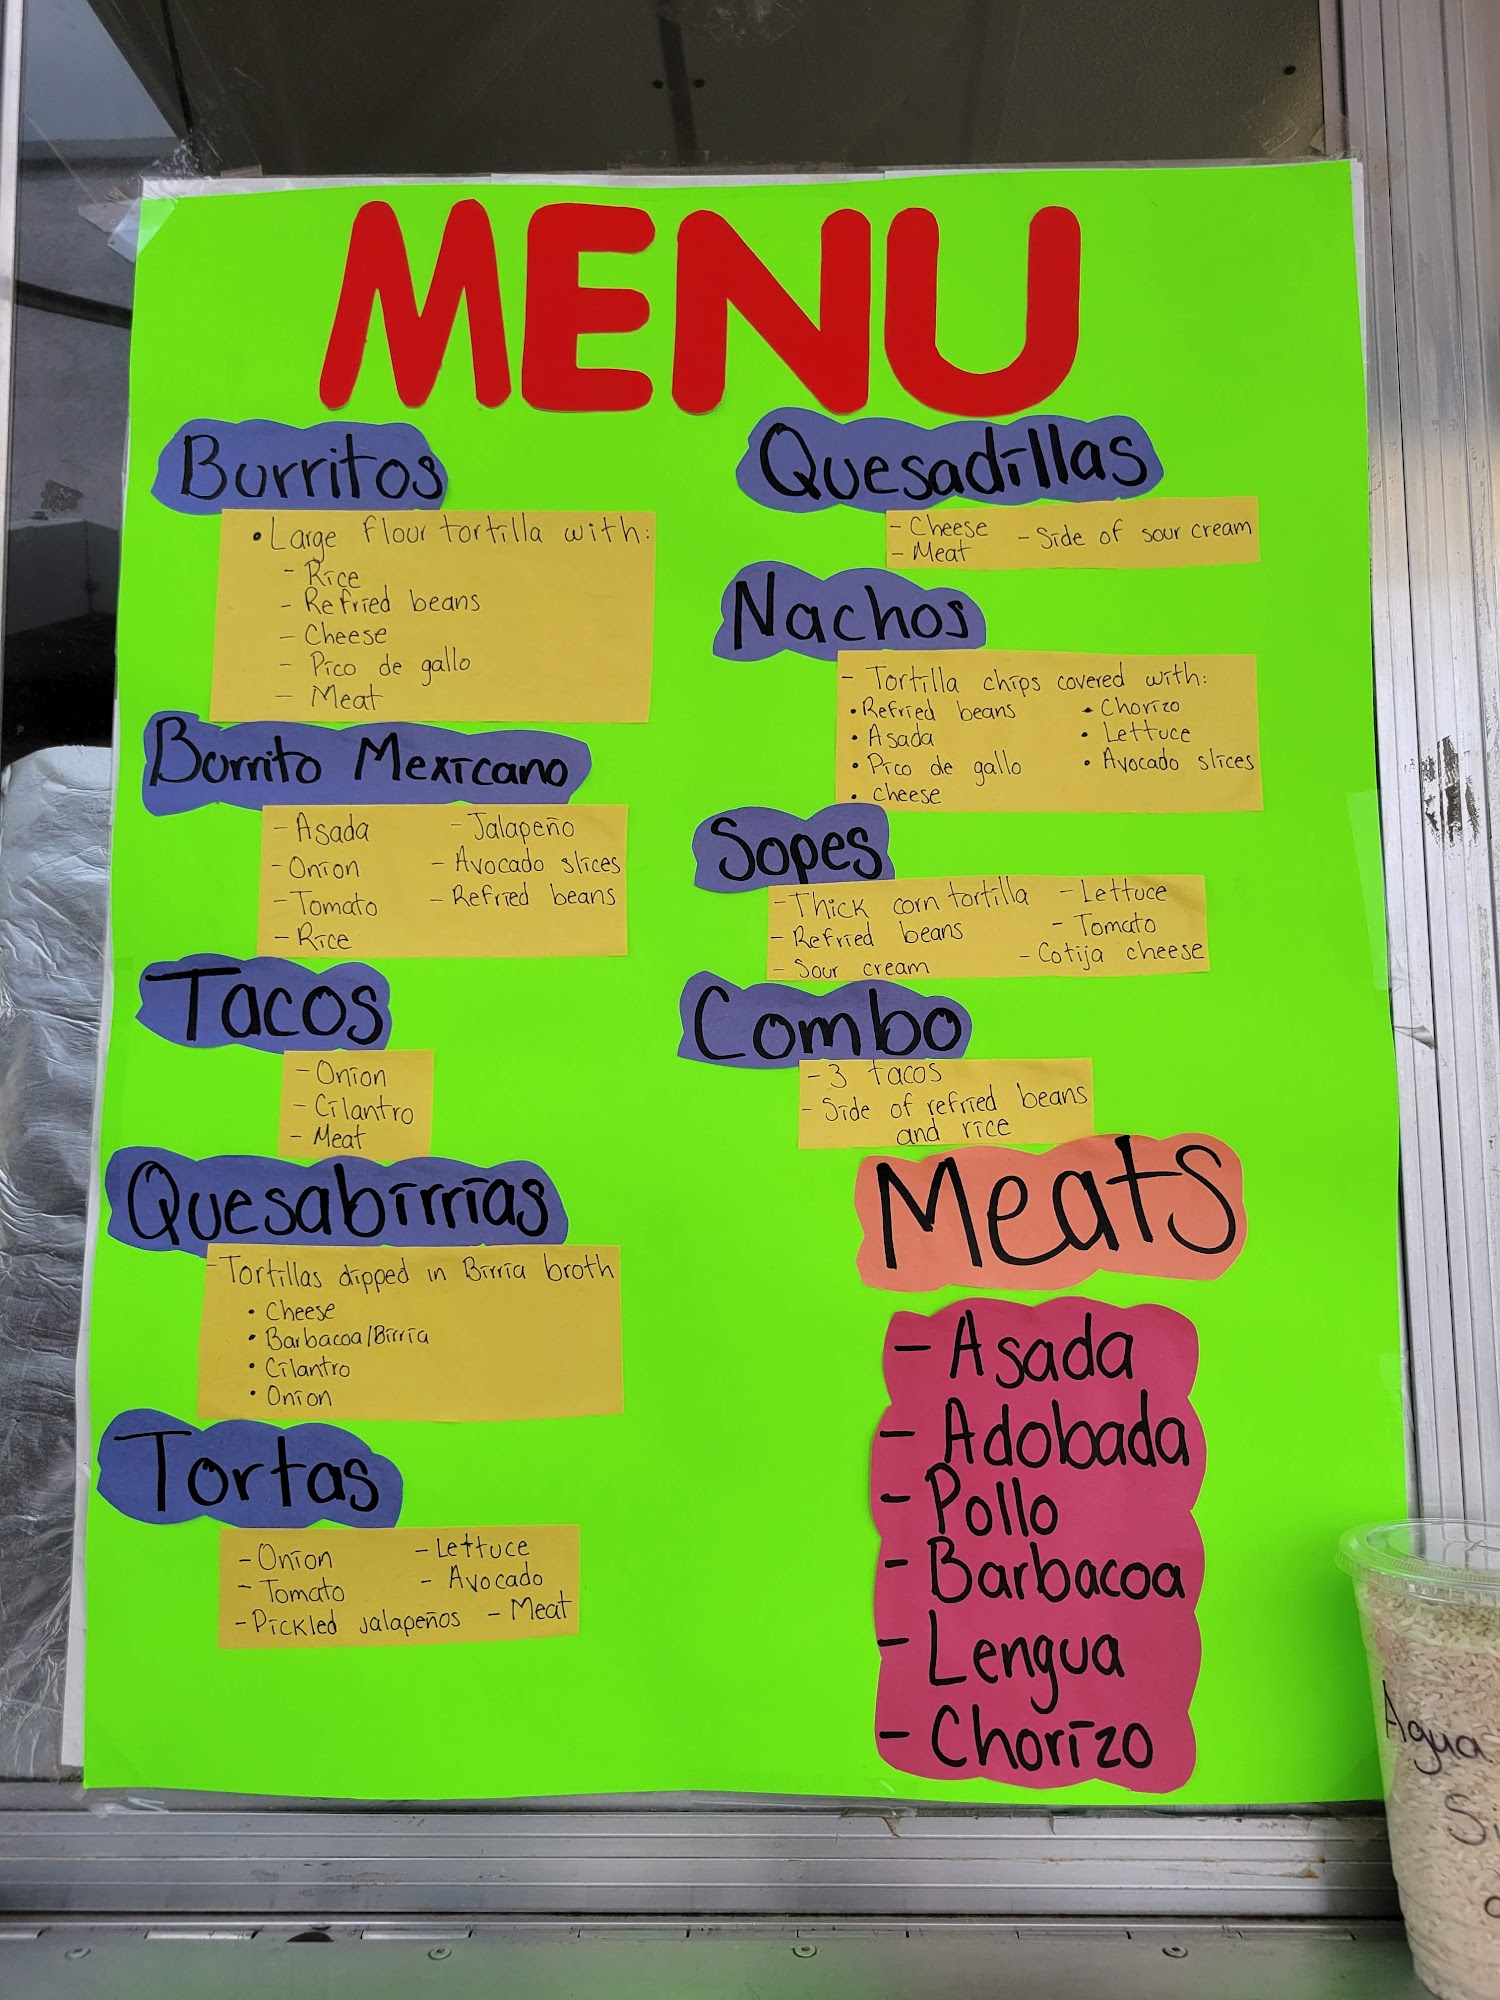 MENU
Burritos
• Large flour tortilla with:
- Rice
- Refried beans
- Cheese
- Pico de gallo
- Meat
Burrito Mexicano
- Asada
- Onion
- Tomato
- Rice
- Jalapeño
- Avocado slices
- Refried beans
Tacos
- Onion
- Cilantro
- Meat
Quesabirrias
- Tortillas dipped in Birria broth
• Cheese
• Barbacoa/Birria
• Cilantro
• Onion
Tortas
- Onion
- Tomato
- Pickled jalapeños
- Lettuce
- Avocado
- Meat
Quesadillas
- Cheese
- Meat
- Side of sour cream
Nachos
- Tortilla chips covered with:
• Refried beans
• Asada
• Pico de gallo
• Cheese
• Chorizo
• Lettuce
• Avocado slices
Sopes
- Thick corn tortilla
- Refried beans
- Sour cream
- Lettuce
- Tomato
- Cotija cheese
Combo
- 3 tacos
- Side of refried beans
and rice
Meats
- Asada
- Adobada
- Pollo
- Barbacoa
- Lengua
- Chorizo
Agua